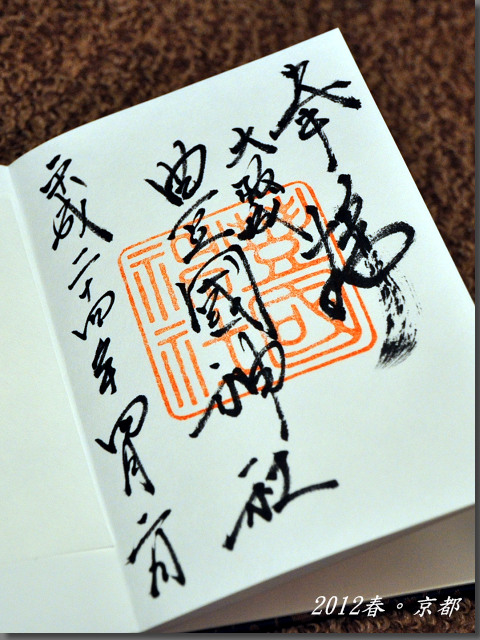 奉拝
大阪城
豊國神社
平成二十四年四月
2012春。京都